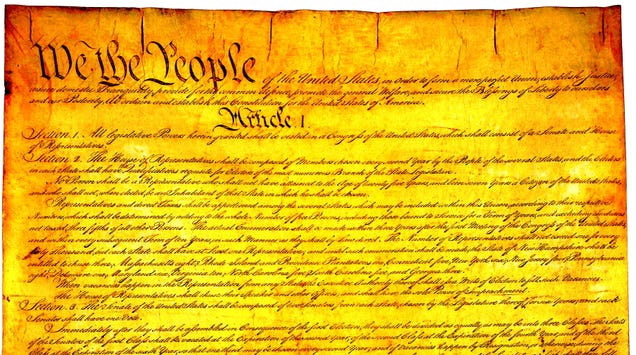 We the People of the United States, in Order to form a more perfect Union, establish Justice,
insure domestic Tranquility, provide for the common defence, promote the general Welfare, and secure the Blessings of Liberty to ourselves
and our Posterity, do ordain and establish this Constitution for the United States of America.
Article I
Section 1. All legislative Powers herein granted shall be vested in a Congress of the United States, which shall consist of a Senate and House
of Representatives.
Section 2. The House of Representatives shall be composed of Members chosen every second Year by the People of the several States, and the Electors
in each State shall have Qualifications requisite for Electors of the most numerous Branch of the State Legislature.
No Person shall be a Representative who shall not have attained to the Age of twenty five Years, and been seven Years a Citizen of the United States,
and who shall not, when elected, be an Inhabitant of that State in which he shall be chosen.
Representatives and direct Taxes shall be apportioned among the several States which may be included within this Union, according to their respective
Numbers, which shall be determined by adding to the whole Number of free Persons, including those bound to Service for a Term of Years, and excluding Indians
not taxed, three fifths of all other Persons. The actual Enumeration shall be made within three Years after the first Meeting of the Congress of the United States,
and within every subsequent Term of ten Years, in such Manner as they shall by Law direct. The Number of Representatives shall not exceed one for every
thirty Thousand, but each State shall have at Least one Representative; and until such enumeration shall be made, the State of New Hampshire shall be
entitled to chuse three, Massachusetts eight, Rhode Island and Providence Plantations one, Connecticut five, New York six, New Jersey four, Pennsylvania
eight, Delaware one, Maryland six, Virginia ten, North Carolina five, South Carolina five, and Georgia three.
When vacancies happen in the Representation from any State, the Executive Authority thereof shall issue Writs of Election to fill such Vacancies.
The House of Representatives shall chuse their Speaker and other Officers; and shall have the sole Power of Impeachment.
Section 3. The Senate of the United States shall be composed of two Senators from each State, chosen by the Legislature thereof, for six Years; and each
Senator shall have one Vote.
Immediately after they shall be assembled in Consequence of the first Election, they shall be divided as equally as may be into three Classes. The Seats
of the Senators of the first Class shall be vacated at the Expiration of the second Year, of the second Class at the Expiration of the fourth Year, and of the third
Class at the Expiration of the sixth Year, so that one third may be chosen every second Year; and if Vacancies happen by Resignation, or otherwise, during the